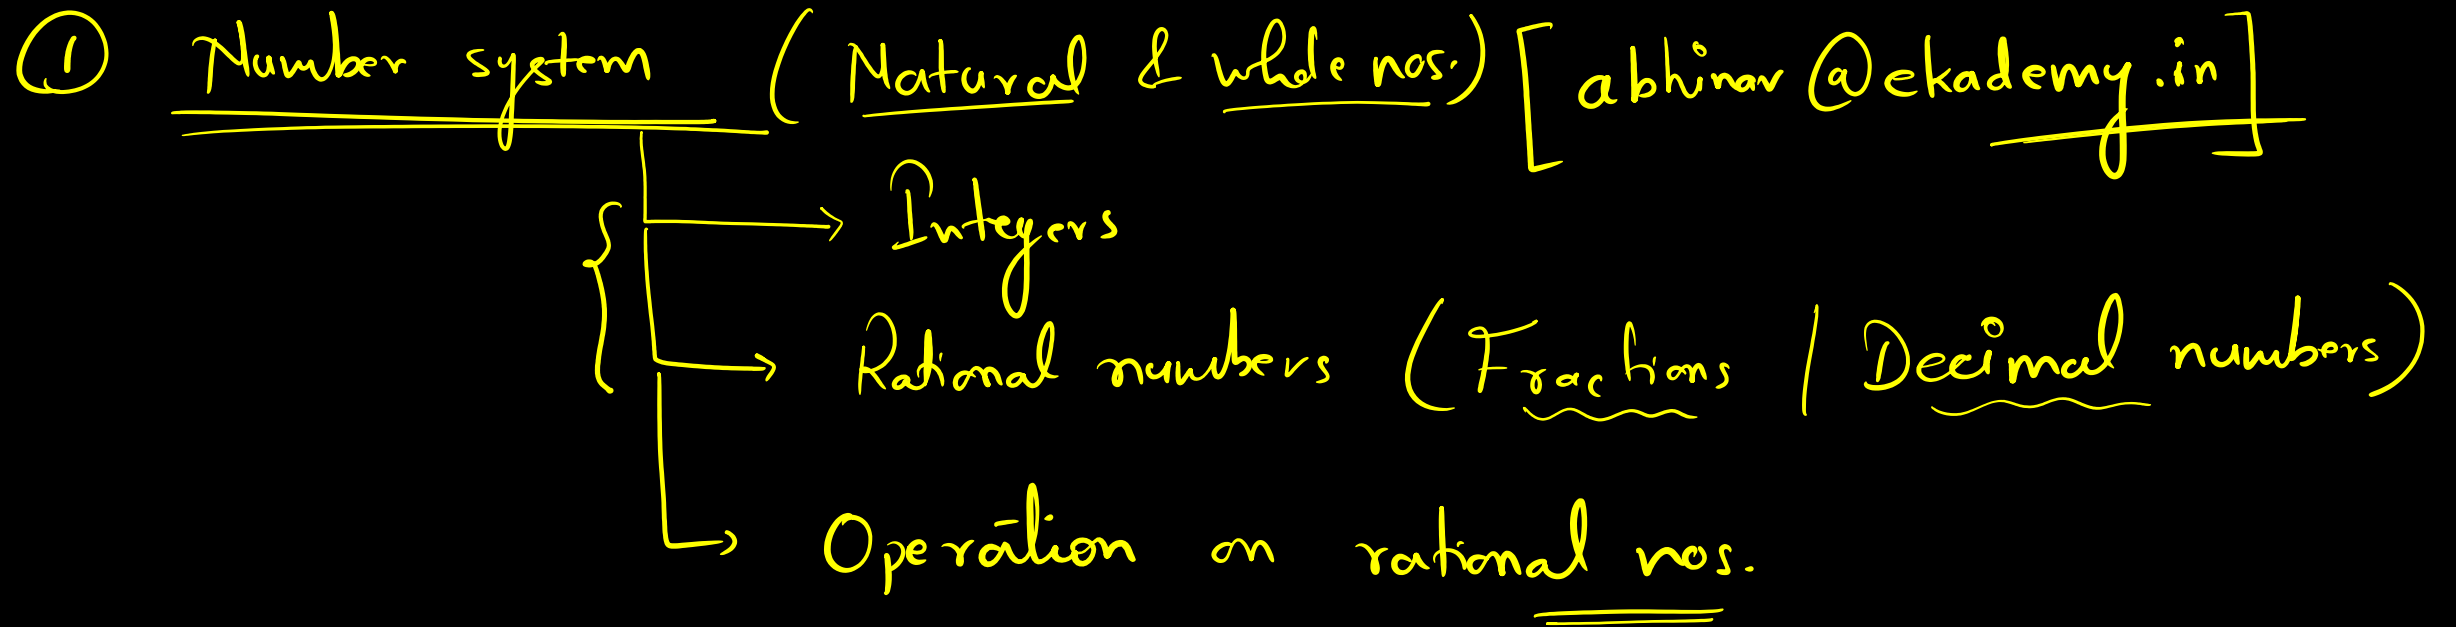 ① Number system (Natural & whole nos.) [abhinav@ekademy.in]
→ Integers
→ Rational numbers (Fractions / Decimal numbers)
→ Operation on rational nos.